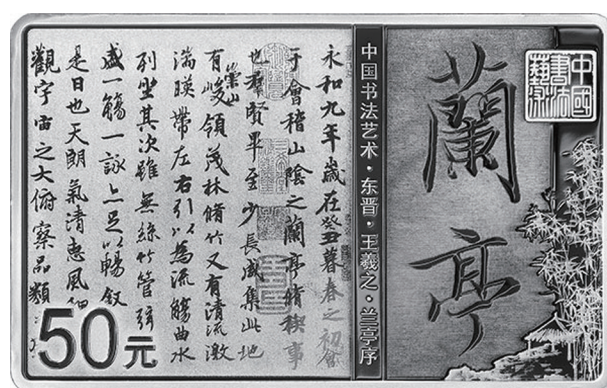 中國書法藝術
蘭亭
中国书法艺术·东晋·王羲之·兰亭序
永和九年歲在癸丑暮春之初會
于會稽山陰之蘭亭脩稧事
也群賢畢至少長咸集此地
有崇山峻領茂林脩竹又有清流激
湍暎帶左右引以為流觴曲水
列坐其次雖無絲竹管弦
盛一觴一詠亦足以暢叙
是日也天朗氣清惠風
觀宇宙之大俯察品類
50元